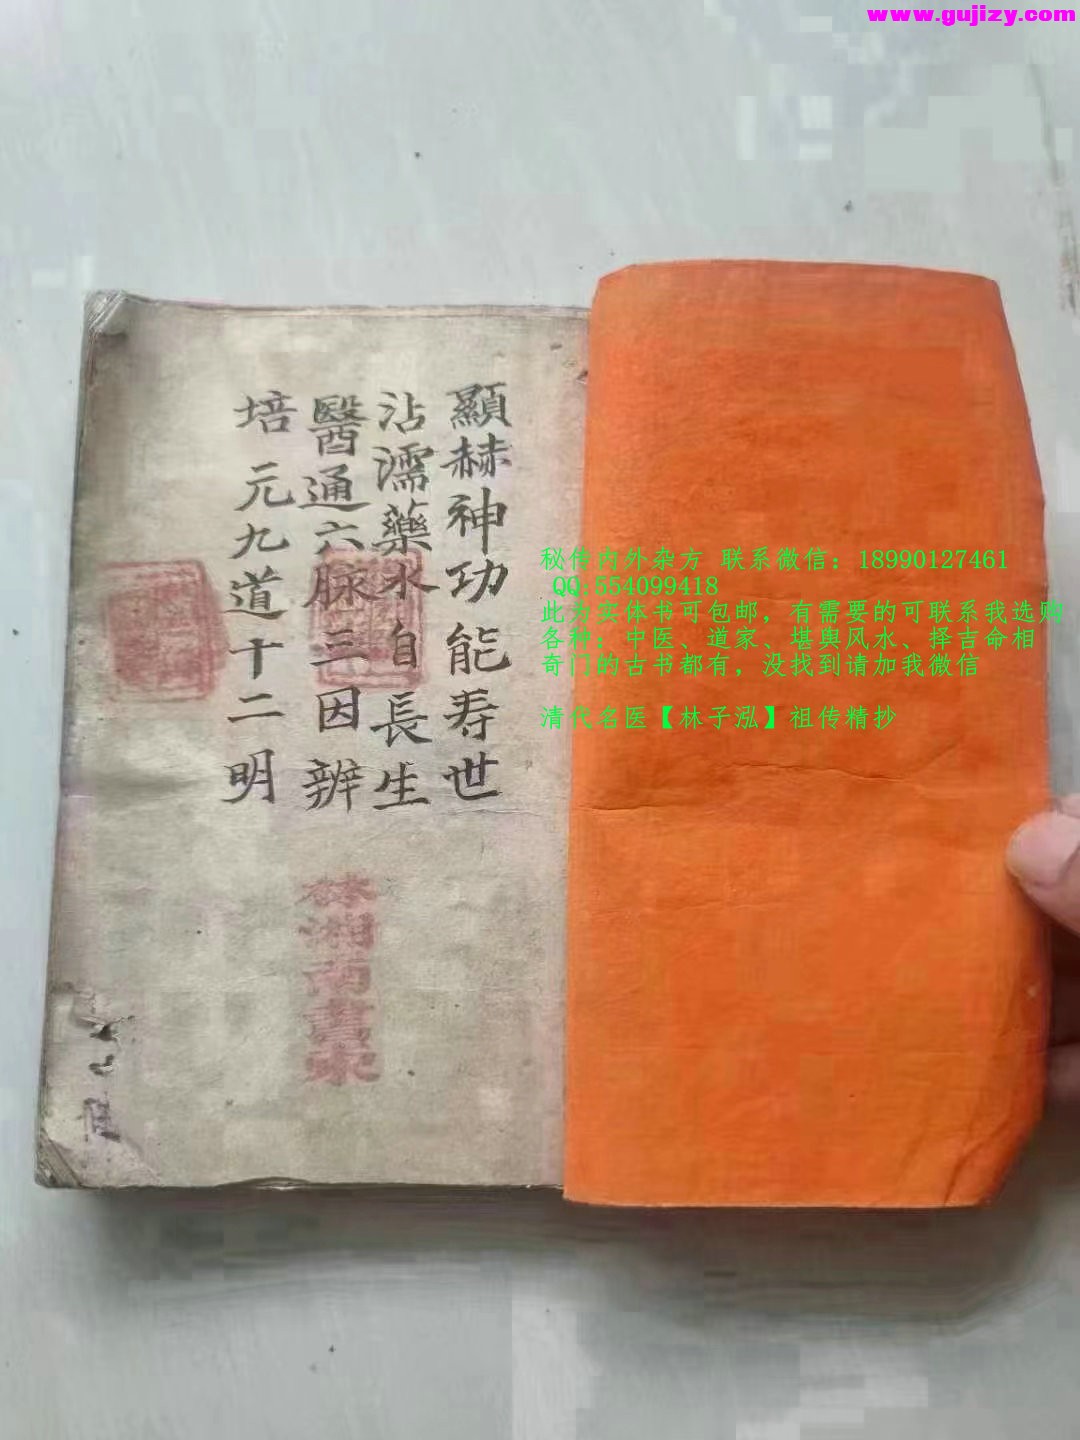 www.gujizy.com
顯赫神功能寿世
沾濡藥水自長生
醫通六脉三因辨
培元九道十二明
秘传内外杂方 联系微信：18990127461
QQ:554099418
此为实体书可包邮，有需要的可联系我选购
各种；中医、道家、堪舆风水、择吉命相
奇门的古书都有，没找到请加我微信
清代名医【林子泓】祖传精抄